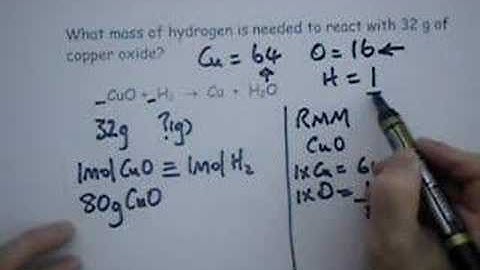 What mass of hydrogen is needed to react with 32 g of
copper oxide?
Cu = 64 O = 16 ←
H = 1
_CuO + _H₂ → Cu + H₂O
32g ?(g)
1mol CuO ≡ 1mol H₂
80g CuO
RMM
CuO
1xCu = 6
1xO =